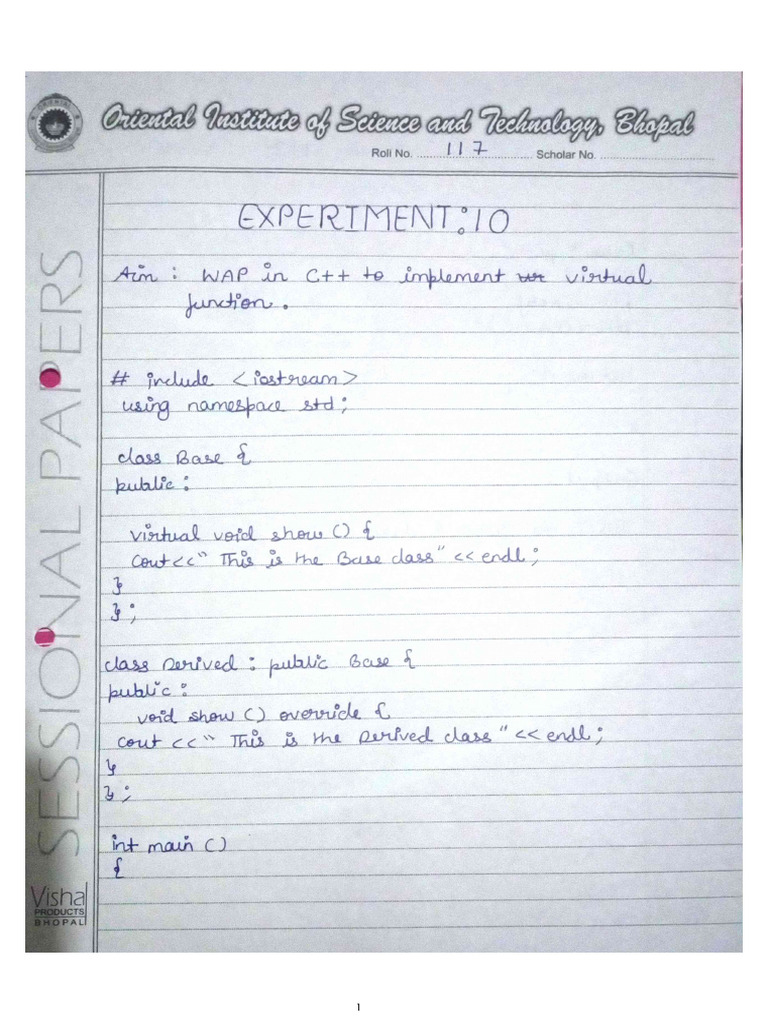 Oriental Institute of Science and Technology, Bhopal
Roll No. 117 Scholar No.
EXPERIMENT:10
Aim : WAP in C++ to implement virtual
function.
# include <iostream>
using namespace std;
class Base {
public:
virtual void show () {
cout<<" This is the Base class" << endl;
}
};
class Derived : public Base {
public:
void show () override {
cout << " This is the Derived class " << endl;
}
};
int main ()
{
SESSIONAL PAPERS
Vishal
PRODUCTS
BHOPAL
1